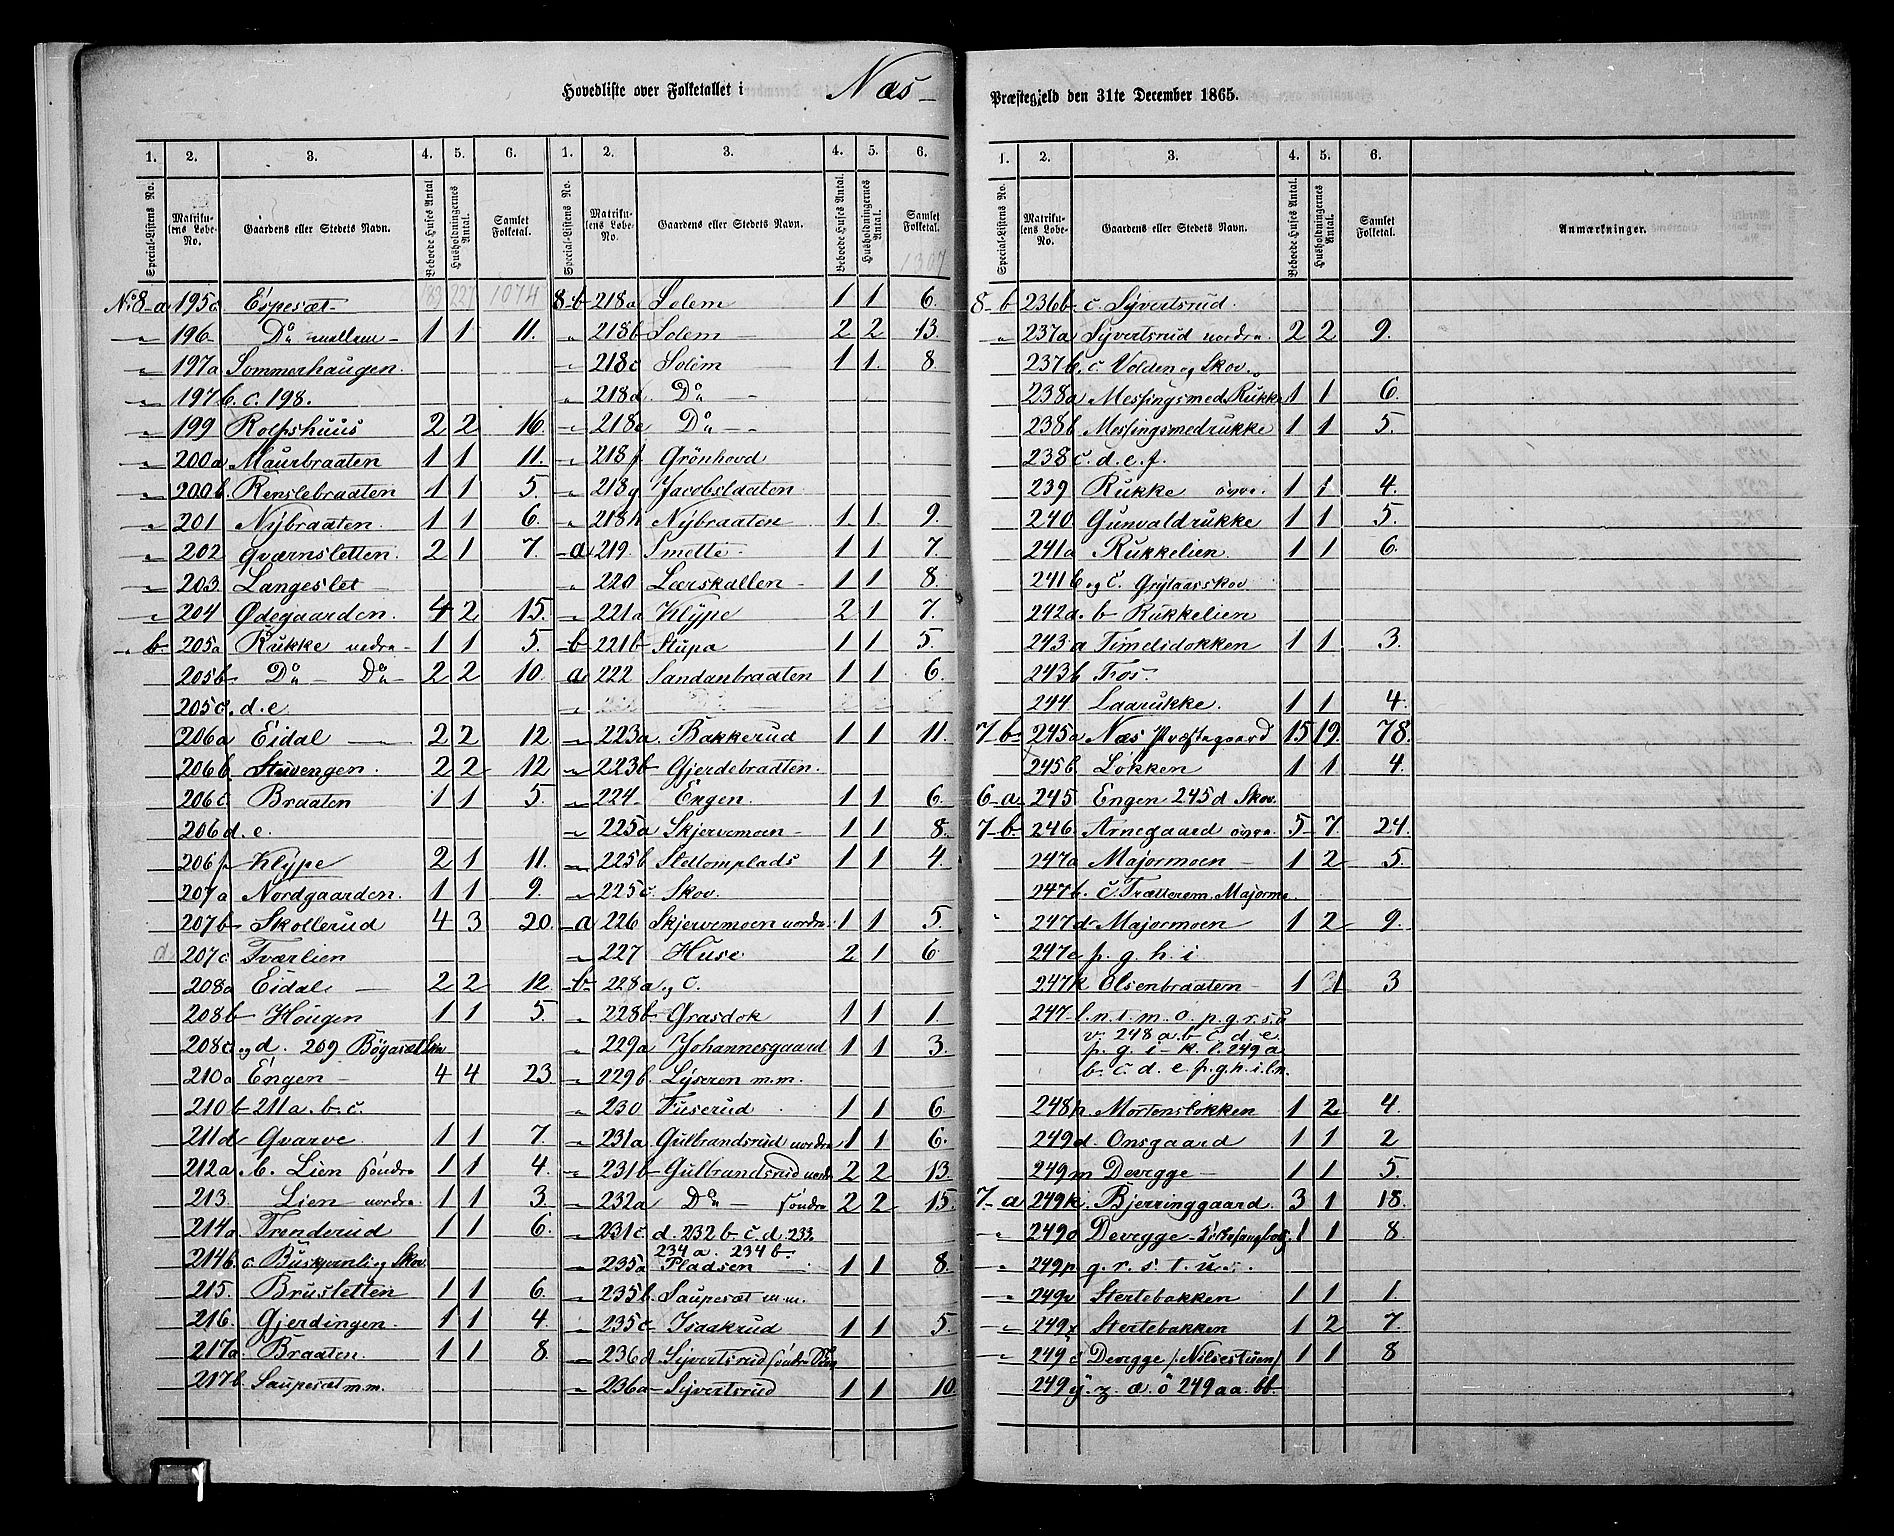 Hovedliste over Folketallet i Næs
Præstegjeld den 31te December 1865.
1. 2. 3. 4. 5. 6. 1. 2. 3. 4. 5. 6.
Special-Listens No. Matrikulens Løbe-No. Gaardens eller Stedets Navn. Beboede Huses Antal. Husholdningernes Antal. Samlet Folketal. Special-Listens No. Matrikulens Løbe-No. Gaardens eller Stedets Navn. Beboede Huses Antal. Husholdningernes Antal. Samlet Folketal.
1307
No 8-a 195c Espesæt 189 227 1074
" 196 Do mellem 1 1 11.
" 197a Sommerhaugen.
" 197b. c. 198.
" 199 Rolfshuus 2 2 16.
" 200a Maurbraaten 1 1 11.
" 200b. Renslebraaten 1 1 5.
" 201 Nÿbraaten. 1 1 6.
" 202 Qværnsletten. 2 1 7.
" 203. Langeslet
" 204 Ødegaarden. 4 2 15.
" b 205a Rukke nedre 1 1 5.
205b Do Do 2 2 10
205c. d. e
206a Eidal 2 2 12
206b. Stuvengen. 2 2 12
206c. Braaten 1 1 5.
206d. e.
206f Klÿpe 2 1 11.
207a Nordgaarden. 1 1 9.
207b Skollerud 4 3 20.
d 207c Tværlien
208a Eidal 2 2 12
208b Haugen 1 1 5.
208c og d. 209 Bögaset
210a Engen 4 4 23
210b 211a. b. c.
211d Qvarve. 1 1 7.
212a b. Lien söndre 1 1 4.
213. Lien nordre. 1 1 3.
214a Trenderud 1 1 6.
214b. c Buskerenli og Skov.
215. Brusletten 1 1 6.
216. Gjerdingen. 1 1 4.
217a. Braaten. 1 1 8
217b. Saupesæt m.m.
8-b 218a Solem 1 1 6.
" 218b Solem 2 2 13
" 218c Solem 1 1. 8
" 218d. Do
" 218e Do
" 218f Grönhovd
" 218g Jacobsldaten.
" 218h Nÿbraaten 1. 1. 9.
-a 219. Smette. 1 1 7.
" 220 Lærskallen 1 1 8.
" 221a Klÿpe 2 1 7.
-b 221b Stupa 1 1 5.
a 222 Sandanbraaten 1 1 6.
" 223a. Bakkerud 1 1 11.
" 223b Gjerdebraaten.
" 224. Engen. 1 1 6.
" 225a Skjervemoen 1 1 8.
" 225b Sletlomplads 1 1 4.
" 225c. Skov.
-a 226 Skjervemoen nordre 1 1 5.
" 227 Huse 2 1 6.
-b 228a og c.
" 228b Grasdok 1 1 1.
" 229a Johannesgaard 1 1 3.
" 229b. Lÿseren m.m.
" 230 Tuserud 1 1 6.
" 231a Gulbrandsrud nordre 1 1 6.
" 231b Gulbrandsrud nordre 2 2 13.
" 232a Do söndre 2 2 15.
231c d. 232 b c. d. 233.
234 a. 234 b.
235a Pladsen 1 1 8.
" 235b. Saupesæt m.m.
" 235c Isaakrud 1 1 5.
" 236d Sÿvertsrud söndre
" 236a Sÿvertsrud 1 1 10.
1. 2. 3. 4. 5. 6.
Special-Listens No. Matrikulens Løbe-No. Gaardens eller Stedets Navn. Beboede Huses Antal. Husholdningernes Antal. Samlet Folketal. Anmærkninger.
8-b 236b c. Sÿvertsrud.
" 237a Sÿvertsrud nordre. 2 2 9.
237b. c. Volden og Skov.
238a Messingsmed.Rukke 1 1 6.
238b Messingsmedrukke 1 1 5.
238c. d. e. f.
239 Rukke övre. 1 1 4.
240. Gunvaldrukke 1 1 5.
241a Rukkelien. 1 1 6.
241b og c. Grÿtaasskov
242a. b Rukkelien
243a Timelidokken 1 1 3.
243b Fos
244. Laarukke. 1 1 4.
7-b 245a Næs Præstegaard 15 19 78.
245b. Lökken 1 1 4.
6-a 245 Engen 245d Skov.
7-b. 246. Arnegaard övre. 5 7 24.
247a Majormoen 1 2 5.
247b. c. Trætterem. Majormo
" 247d Majormoen 1 2 9.
247e f. g. h. i
247k Olsenbraaten 1 1 3
247 l. n. t. m. o. p. q. r. s. u
v. 248 a. b c. d. e.
f. g. i k. l. 249 a
b. c. d. e f. g. h. i. l n.
248h. Mortenslökken 1 2 4.
249d. Onsgaard 1 1 2
249m Devegge 1 1 5.
7-a 249k. Bjerringgaard. 3 1 18.
" 249o Devegge 1 1 8.
" 249p q. r. s. t. u.
" 249v Stertebakken 1 1 1
" 249x Stertebakken 1 2 7.
" 249 Devegge /Nilsestuen/ 1 1 8
249 y. z. æ. ö 249 aa. bb.